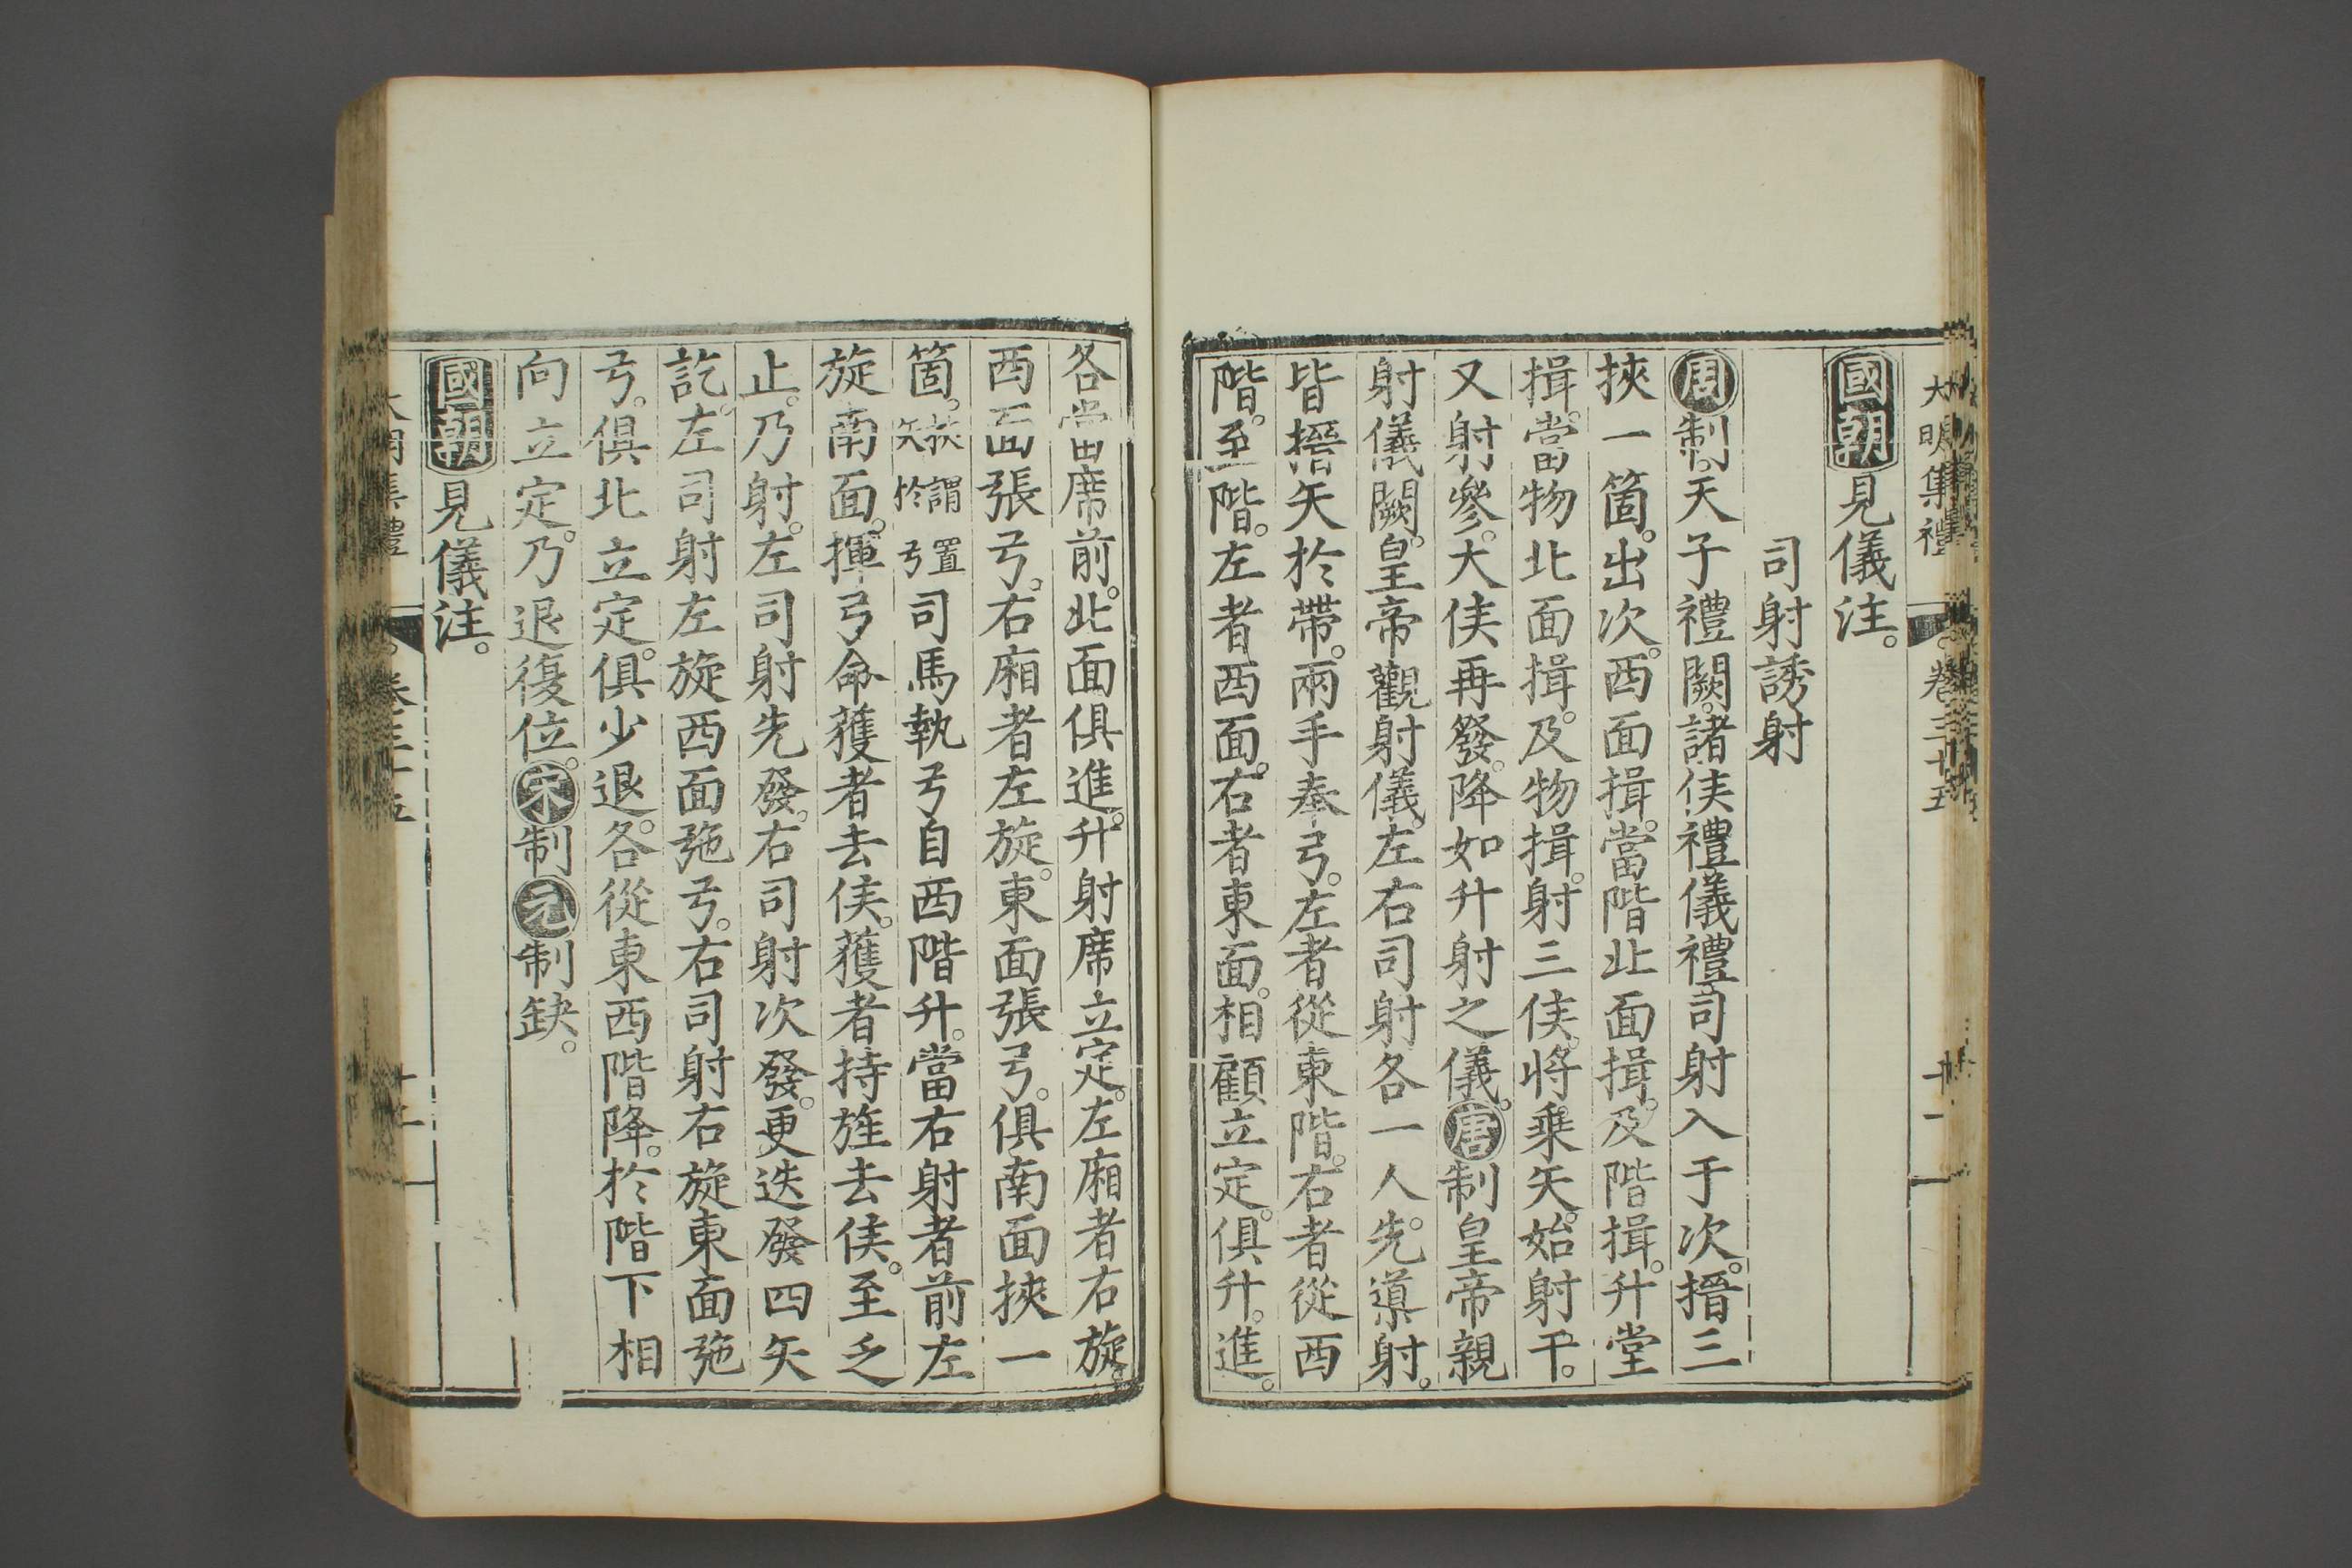 大明集禮 卷三十五 十一
國朝見儀注。
司射誘射
周制。天子禮闕。諸侯禮儀禮。司射入于次。搢三
挾一箇。出次。西面揖。當階北面揖。及階揖。升堂
揖。當物北面揖。及物揖。射三侯。將乘矢。始射干。
又射參。大侯再發。降如升射之儀。唐制皇帝親
射儀闕。皇帝觀射儀。左右司射各一人。先導射。
皆搢矢於帶。兩手奉弓。左者從東階。右者從西
階。至階。左者西面。右者東面。相顧立定。俱升。進。
各當席前。北面俱進。升射席立定。左廂者右旋。
西面張弓。右廂者左旋。東面張弓。俱南面挾一
箇。挾謂置矢於弓司馬執弓自西階升。當右射者前左
旋南面。揮弓命獲者去侯。獲者持旌去侯。至乏
止。乃射。左司射先發。右司射次發。更迭發四矢
訖。左司射左旋西面弛弓。右司射右旋東面弛
弓。俱北立定。俱少退。各從東西階降。於階下相
向立定。乃退復位。宋制元制缺。
國朝見儀注。